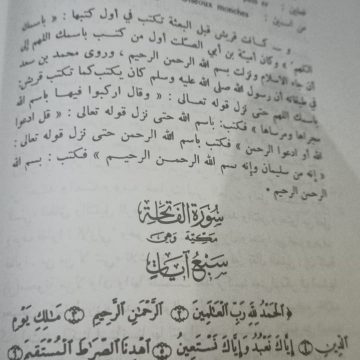 مسلمين : ... moches
و ــ كانت قريش قبل البعثة تكتب في أول كتبها : « باسمك
اللهم » وكان أمية بن أبي الصلت أول من كتب باسمك اللهم إلى
أن جاء الاسلام ونزلت بسم الله الرحمن الرحيم ، وروى محمد بن سعد
في طبقاته أن رسول الله صلى الله عليه وسلم كان يكتب كما تكتب قريش:
باسمك اللهم حتى نزل قوله تعالى : « وقال اركبوا فيها باسم الله
مجراها ومرساها » فكتب: باسم الله حتى نزل قوله تعالى : « قل ادعوا
الله أو ادعوا الرحمن » فكتب بسم الله الرحمن حتى نزل قوله تعالى :
« إنه من سليمان وإنه بسم الله الرحمن الرحيم » فكتب : بسم الله
الرحمن الرحيم •
سورة الفاتحة
مكية وهي
سبع آيات
الحمد لله رب العالمين ② الرحمن الرحيم ③ مالك يوم
الدين ④ إياك نعبد وإياك نستعين ⑤ اهدنا الصراط المستقيم ⑥